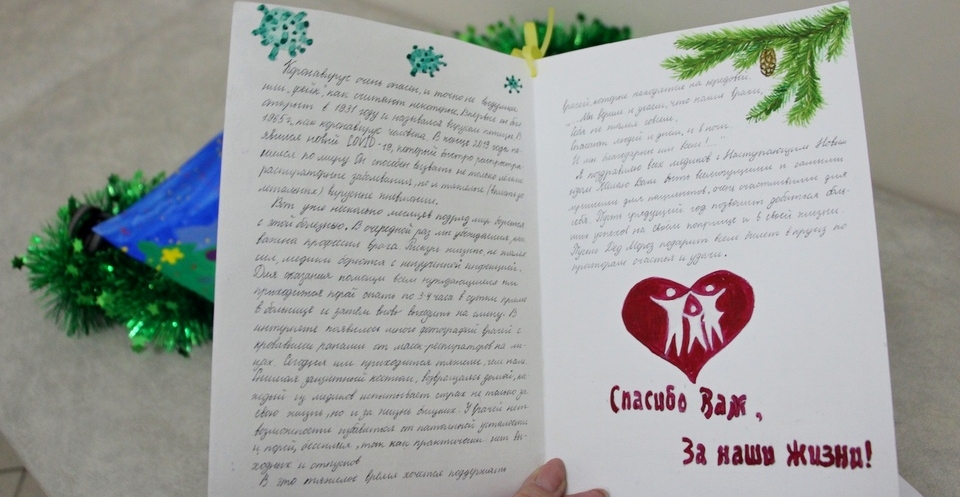 Коронавирус очень опасен, и точно не выдуманный
"фейк", как считают некоторые. Впервые он был
открыт в 1931 году и назывался вирусом птицы. В
1965 г. как коронавирус человека. В конце 2019 года по-
явился новый COVID-19, который быстро распростра-
нился по миру. Он способен вызвать не только лёгкие
респираторные заболевания, но и тяжёлые (вплоть до
летальных) вирусные пневмонии.
Вот уже несколько месяцев подряд мир борется
с этой болезнью. В очередной раз мы убеждаемся, как
важна профессия врача. Рискуя жизнью, не жалея
сил, медики борются с неизученной инфекцией.
Для оказания помощи всем нуждающимся им
приходится порой спать по 3-4 часа в сутки прямо
в больнице и затем вновь выходить на смену. В
интернете появилось много фотографий врачей с
кровавыми ранами от масок, респираторов на ли-
цах. Сегодня им приходится тяжелее, чем нам.
Снимая защитный костюм, возвращаясь домой, ка-
ждый из медиков испытывает страх не только за
свою жизнь, но и за жизнь близких. У врачей нет
возможности избавиться от постоянной усталости
и, порой, бессилия, так как практически нет вы-
ходных и отпусков
В это тяжёлое время хочется поддержать
врачей, которые находятся на передовой.
Мы верим и знаем, что наши врачи,
Себя не жалея совсем,
Спасают людей и днём, и в ночи
И мы благодарны им всем!
Я поздравляю всех медиков с Наступающим Новым
годом. Желаю Вам быть великодушными и самыми
лучшими для пациентов, очень счастливыми для
себя. Пусть грядущий год позволит добиться боль-
ших успехов на своём поприще и в своей жизни.
Пусть Дед Мороз подарит всем билет в круиз по
просторам счастья и удачи.
Спасибо Вам,
За наши жизни!